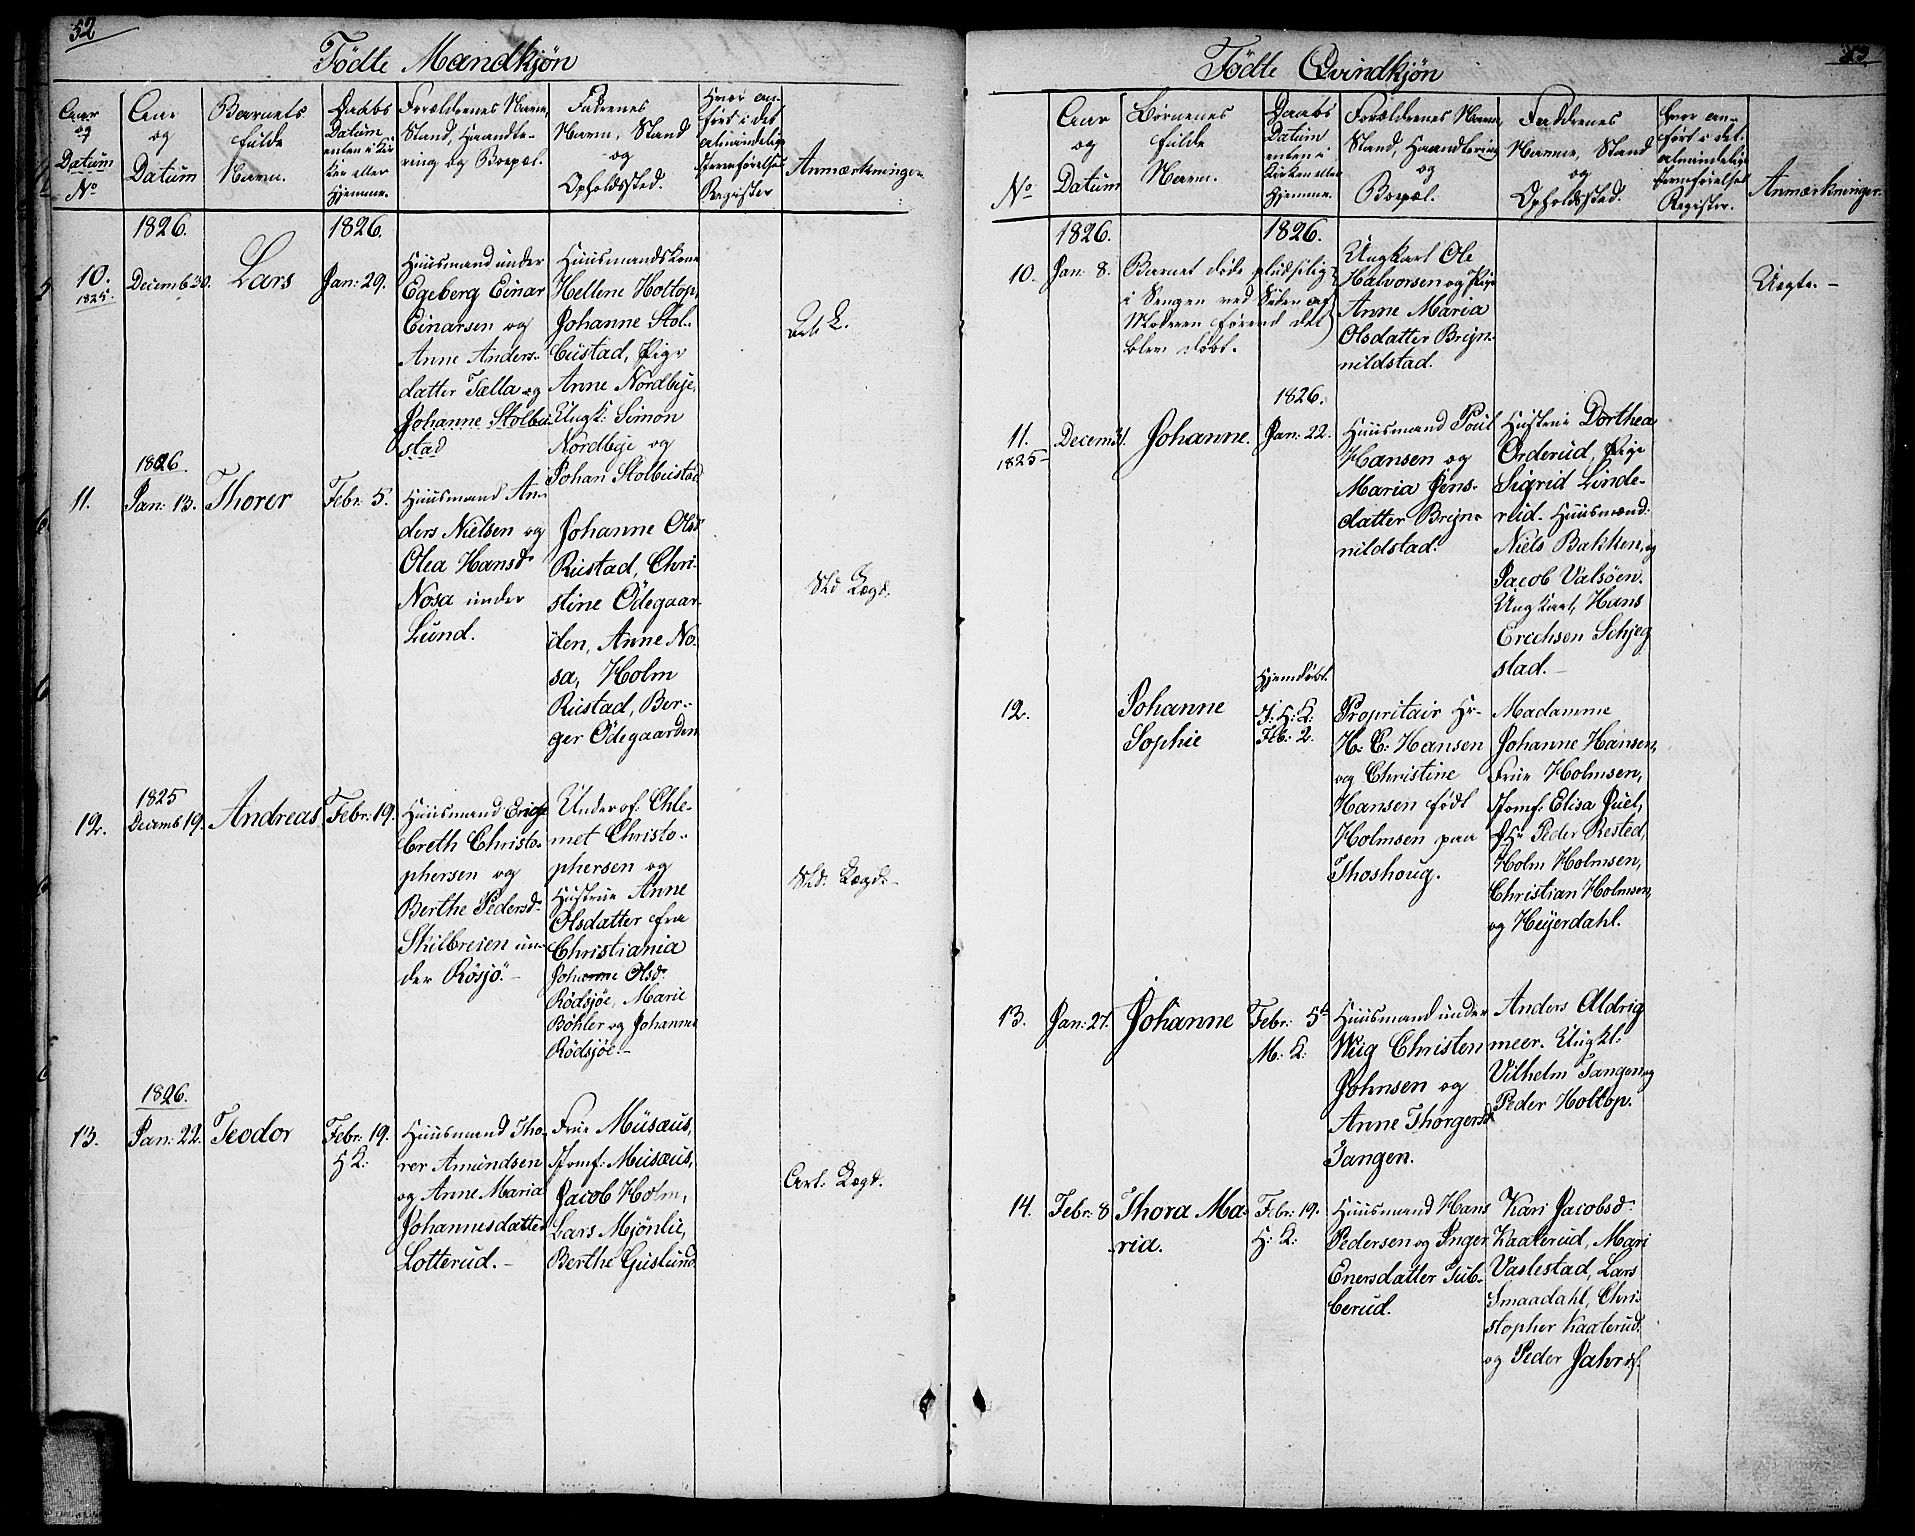 52
Födte Mandkjøn
Aar og Datum No
Aar og Datum
Barnets fulde Navn.
Daabs Datum enten i Kirken eller Hjemme.
Forældrenes Navn, Stand, Haandtering og Boepæl.
Faddrenes Navn, Stand og Opholdssted.
Hvor anført i det almindelige Jevnførelses Register
Anmærkninger
1826.
1826.
10.
1825.
Decemb 30.
Lars
Jan: 29.
Huusmand under
Egeberg Einar
Einarsen og
Anne Anders-
datter Tælla og
Johanne Stolbu-
stad
Huusmandskone
Hellene Holtop,
Johanne Stol-
bustad, Pige
Anne Nordbye,
Ungk: Simon
Nordbye og
Johan Stolbustad
1826.
11.
Jan: 13.
Thorer
Febr: 5.
Huusmand An-
ders Nielsen og
Olea Hansd:
Nosa under
Lund.
Johanne Olsd:
Rustad, Chri-
stine Ödegaar-
den, Anne No-
sa, Holm
Rustad, Ber-
ger Ödegaarden
Sld Lægd.
1825
12.
Decemb 19.
Andreas
Febr: 19.
Huusmand Enge-
breth Christo-
phersen og
Berthe Pedersd:
Skilbreien un-
der Rösjö.-
Underof. Chle-
met Christo-
phersen og
Hustrue Anne
Olsdatter fra
Christiania
Johanne Olsd:
Rödsjøe, Marie
Böhler og Johanne
Rödsjøe.-
Sld: Lægd.-
1826.
13.
Jan: 22.
Teodor
Febr: 19.
H K:
Huusmand Tho-
rer Amundsen
og Anne Maria
Johannesdatter
Lotterud.-
Frue Musæus,
Jomf: Musæus,
Jacob Holm,
Lars Mjönlie,
Berthe Guslund.
Art. Lægd.
Födte Qvindkjön
No
Aar og Datum
Börnenes fulde Navn.
Daabs Datum enten i Kirken eller Hjemme.
Forældrenes Navne, Stand, Haandtering og Boepæl.
Faddrenes Navne, Stand og Opholdssted.
Hvor anført i det almindelige Jevnførelses Register.
Anmærkninger.
1826.
1826.
10.
Jan: 8.
Barnet døde pludselig
i Sengen ved Siden af
Moderen førend det
blev døbt.
Ungkarl Ole
Halvorsen og Pige
Anne Maria
Olsdatter Bryn-
nildstad.
Uægte.-
1826.
11.
1825-
Decem 31.
Johanne.
Jan: 22.
Huusmand Poul
Hansen og
Maria Jens-
datter Bryn-
nildstad.
Hustrue Dorthea
Orderud, Pige
Sigrid Linde-
reid. Huusmænd:
Niels Bakken, og
Jacob Valsöen.
Ungkarl, Hans
Erichsen Schjeg-
stad.-
12.
Johanne
Sophie
Hjemdöbt.
J: H: K:
Feb: 2.
Propritair Hr.
H: C: Hansen
og Christine
Hansen födt
Holmsen paa
Thoshoug.
Madamme
Johanne Hansen,
Frue Holmsen,
Jomf. Elisa Juel,
Hr Peder Rested,
Holm Holmsen,
Christian Holmsen,
og Heyerdahl.
13.
Jan: 27.
Johanne
Febr: 5te
M: K:
Huusmand under
Wug Christen
Johnsen og
Anne Thorgersd
Tangen.
Anders Aldrig
meer. Ungkl:
Vilhelm Tangen og
Peder Holtop.
14.
Febr: 8
Thora Ma-
ria.
Febr: 19.
H: K:
Huusmand Hans
Pedersen og Inger
Enersdatter Tub-
berud.
Kari Jacobsd:
Kaaterud, Mari
Vaslestad, Lars
Smaadahl, Chri-
stopher Kaaterud
og Peder Jahr